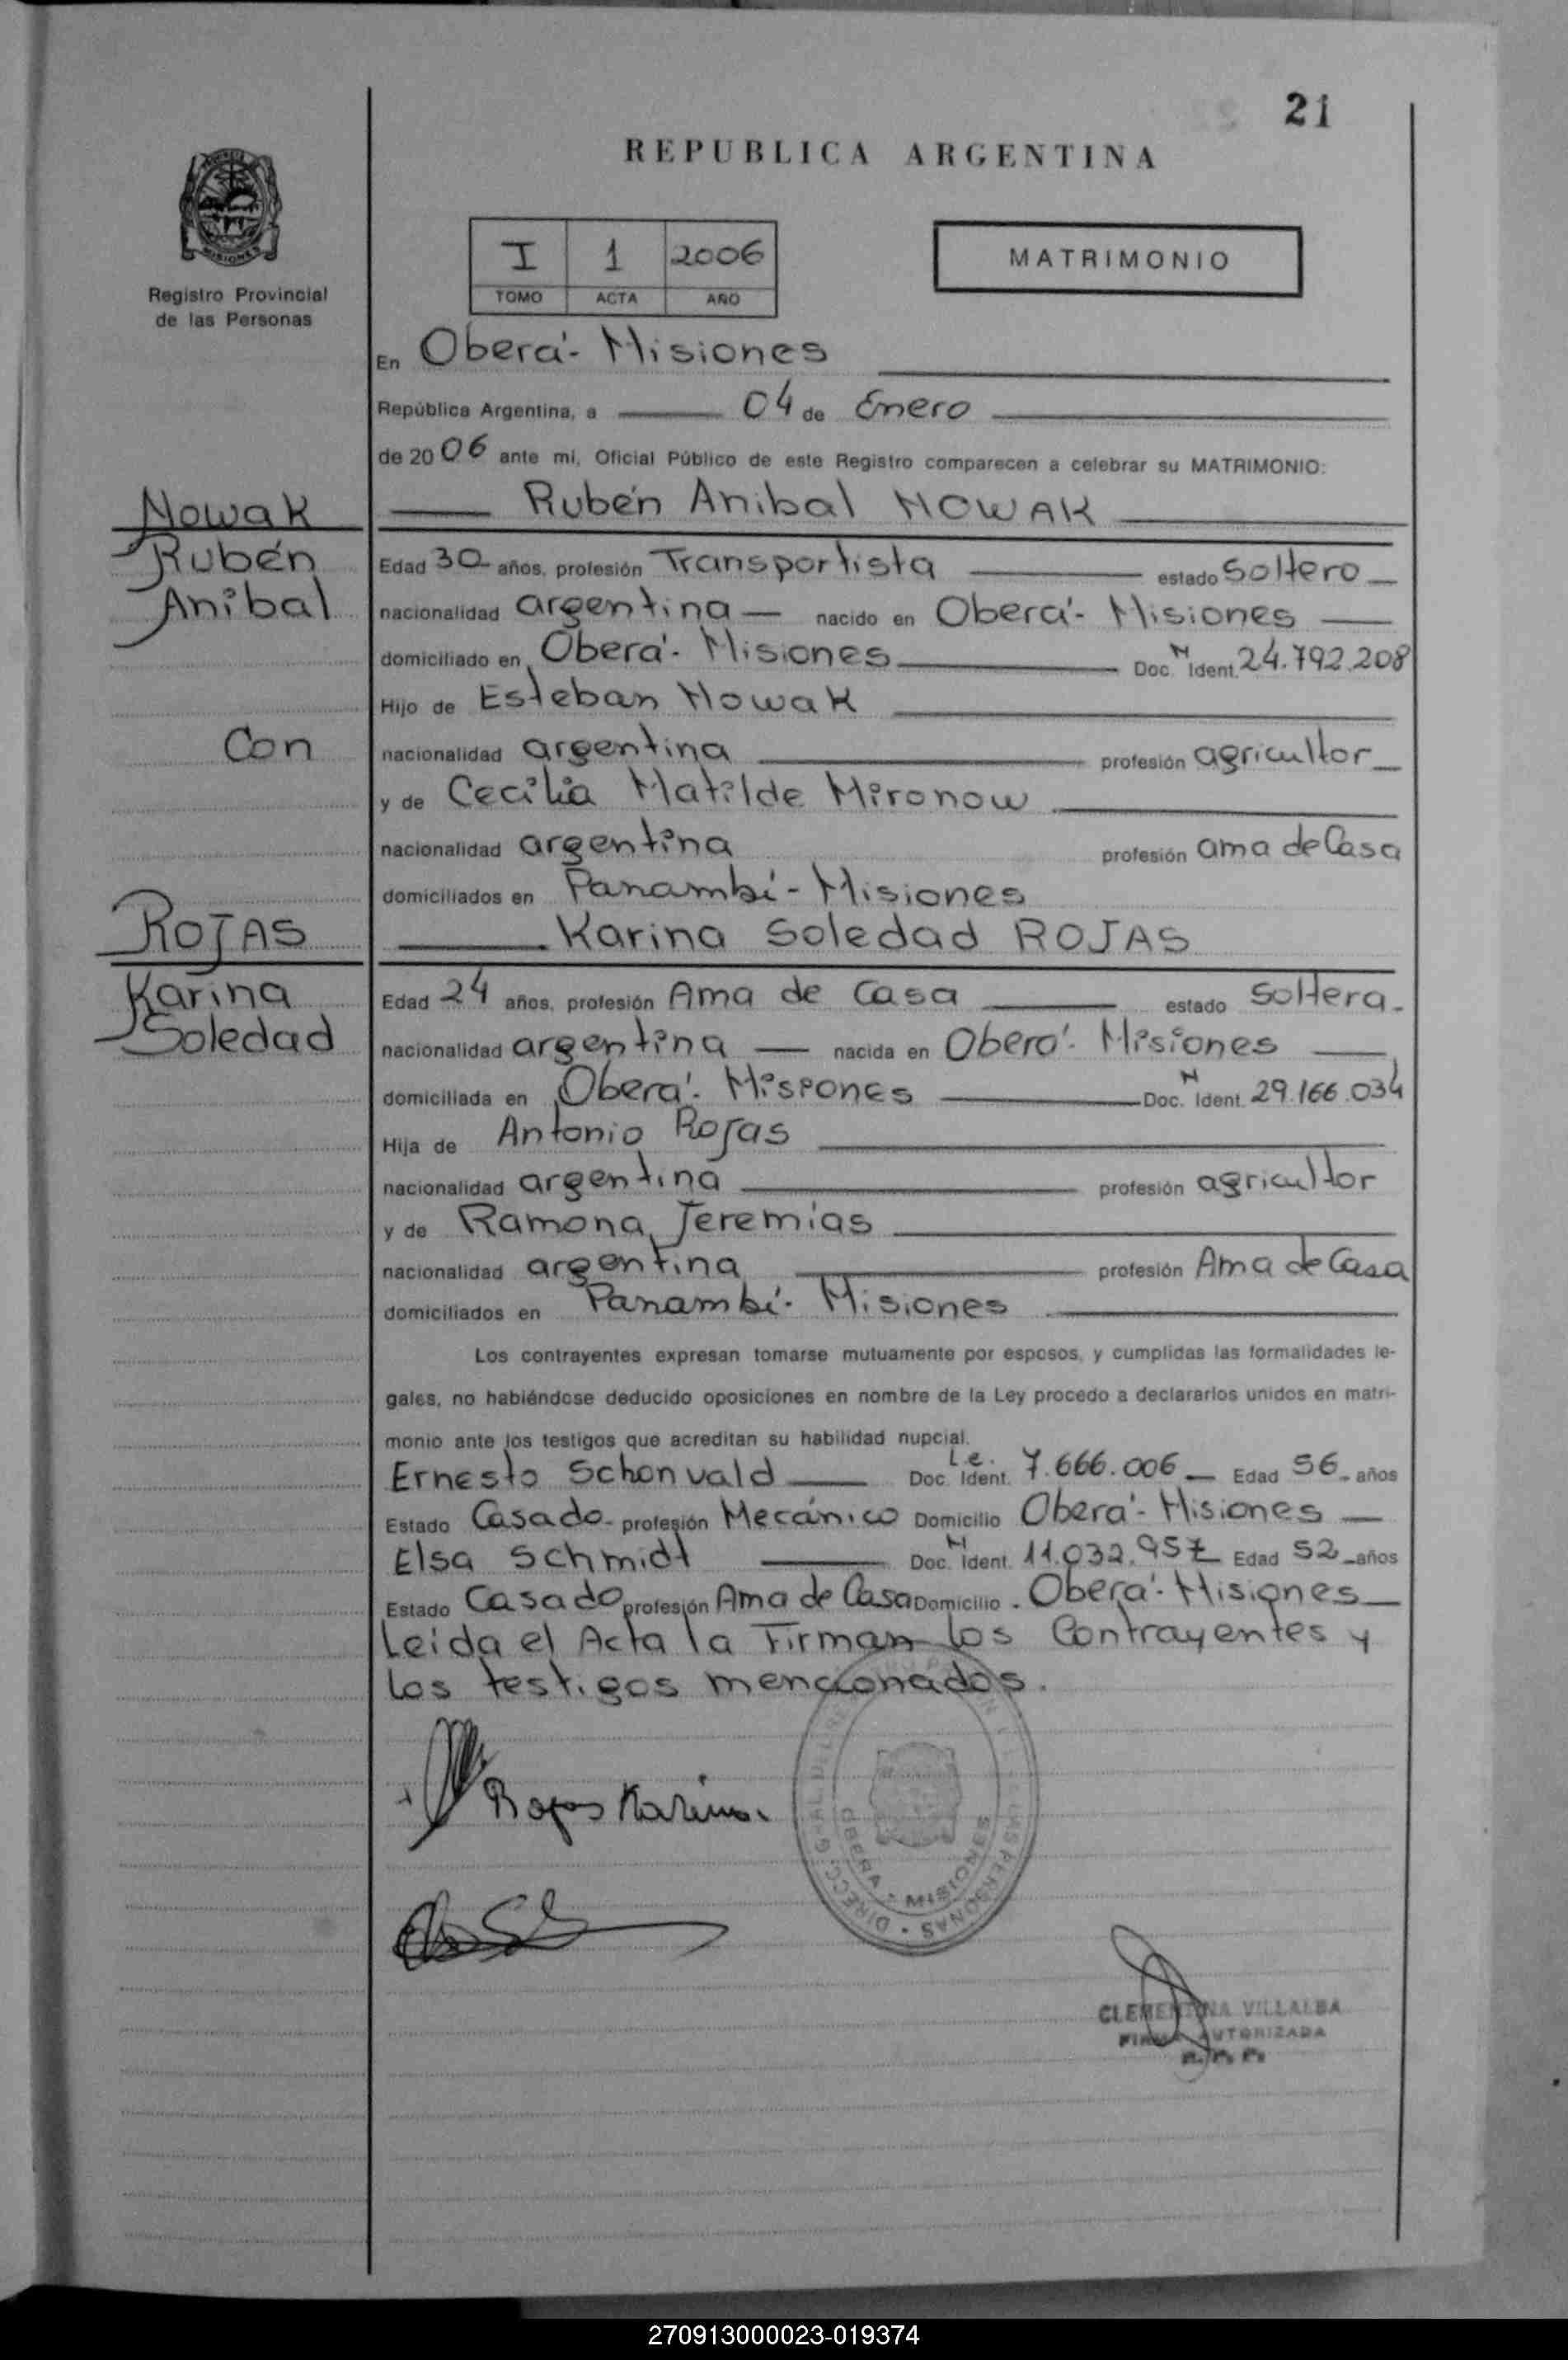 21
REPUBLICA ARGENTINA
MISIONES
Registro Provincial
de las Personas
I 1 2006
TOMO ACTA AÑO
MATRIMONIO
En Oberá - Misiones
República Argentina, a 04 de Enero
de 2006 ante mí, Oficial Público de este Registro comparecen a celebrar su MATRIMONIO:
Nowak
Rubén
Anibal
Con
ROJAS
Karina
Soledad
Rubén Anibal NOWAK
Edad 30 años, profesión Transportista estado Soltero
nacionalidad argentina nacido en Oberá - Misiones
domiciliado en Oberá - Misiones Doc. N Ident. 24.792.208
Hijo de Esteban Nowak
nacionalidad argentina profesión agricultor
y de Cecilia Matilde Mironow
nacionalidad argentina profesión ama de Casa
domiciliados en Panambí - Misiones
Karina Soledad ROJAS
Edad 24 años, profesión Ama de Casa estado Soltera.
nacionalidad argentina nacida en Oberá - Misiones
domiciliada en Oberá - Misiones Doc. N Ident. 29.166.034
Hija de Antonio Rojas
nacionalidad argentina profesión agricultor
y de Ramona Jeremías
nacionalidad argentina profesión Ama de Casa
domiciliados en Panambí - Misiones
Los contrayentes expresan tomarse mutuamente por esposos, y cumplidas las formalidades le-
gales, no habiéndose deducido oposiciones en nombre de la Ley procedo a declararlos unidos en matri-
monio ante los testigos que acreditan su habilidad nupcial.
Ernesto Schonvald Doc. L.e. Ident. 7.666.006 Edad 56 años
Estado Casado profesión Mecánico Domicilio Oberá - Misiones
Elsa Schmidt Doc. N Ident. 11.032.957 Edad 52 años
Estado Casado profesión Ama de Casa Domicilio Oberá - Misiones
Leída el Acta la Firman los Contrayentes y
los testigos mencionados.
Rojas Karina
OBERA - MISIONES
CLEMENTINA VILLALBA
FIRMA AUTORIZADA
270913000023-019374